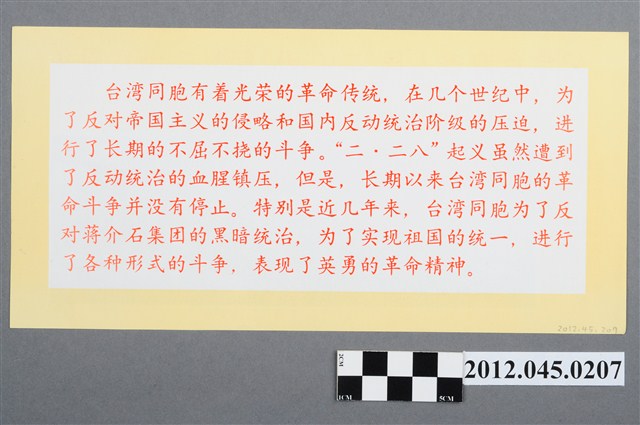 台湾同胞有着光荣的革命传统，在几个世纪中，为
了反对帝国主义的侵略和国内反动统治阶级的压迫，进
行了长期的不屈不挠的斗争。“二·二八”起义虽然遭到
了反动统治的血腥镇压，但是，长期以来台湾同胞的革
命斗争并没有停止。特别是近几年来，台湾同胞为了反
对蒋介石集团的黑暗统治，为了实现祖国的统一，进行
了各种形式的斗争，表现了英勇的革命精神。
2CM
1CM
5CM
2012.045.0207